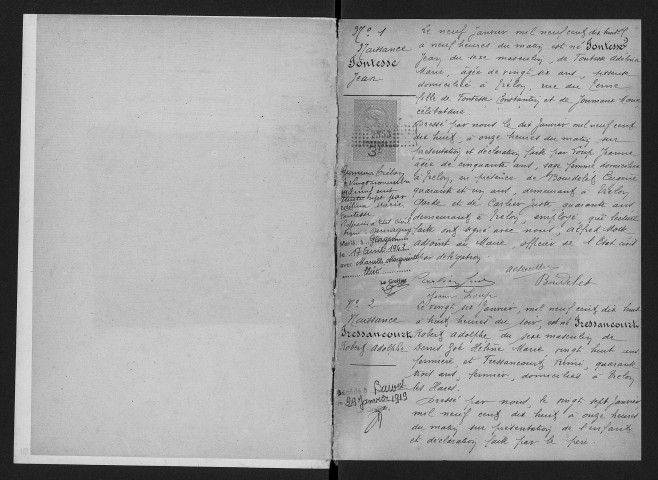 N° 1
Naissance
Fontesse
Jean
Le neuf Janvier mil neuf cent dix huit
à neuf heures du matin est né Fontesse
Jean, du sexe masculin, de Fontesse Adolina
Marie, âgée de vingt six ans,
domiciliée à Trélon, rue du
fille de Fontesse Constantin et de
célibataire.
Dressé par nous le dix Janvier mil neuf cent
dix huit, à onze heures du matin, sur
présentation et déclaration faite par Jeanne
âgée de cinquante ans, sage femme domiciliée
à Trélon, en présence de Bourdelet
quarante et un ans, demeurant à Trélon,
garde et de Carlier Juste quarante ans
demeurant à Trélon, employé, qui lecture
faite ont signé avec nous, Alfred Motte
adjoint au Maire, officier de l'Etat civil
par délégation.
Reconnu à Trélon
le vingt novembre
mil neuf cent
par
Marie
Fontesse
l'officier d'état civil
Marié à
le 17 Avril 1942
avec Marcelle
N° 2
Naissance
Fressancourt
Robert Adolphe
Le vingt six Janvier, mil neuf cent dix huit
à huit heures du soir, est né Fressancourt
Robert Adolphe du sexe masculin de
Denis Zoé Hélène Marie, vingt huit ans
fermière et Fressancourt Rémi, quarante
trois ans, fermier, domiciliés à Trélon
les Haies.
Dressé par nous, le vingt sept Janvier
mil neuf cent dix huit à onze heures
du matin sur présentation de l'enfant
et déclaration faite par le père
29 Janvier 1919